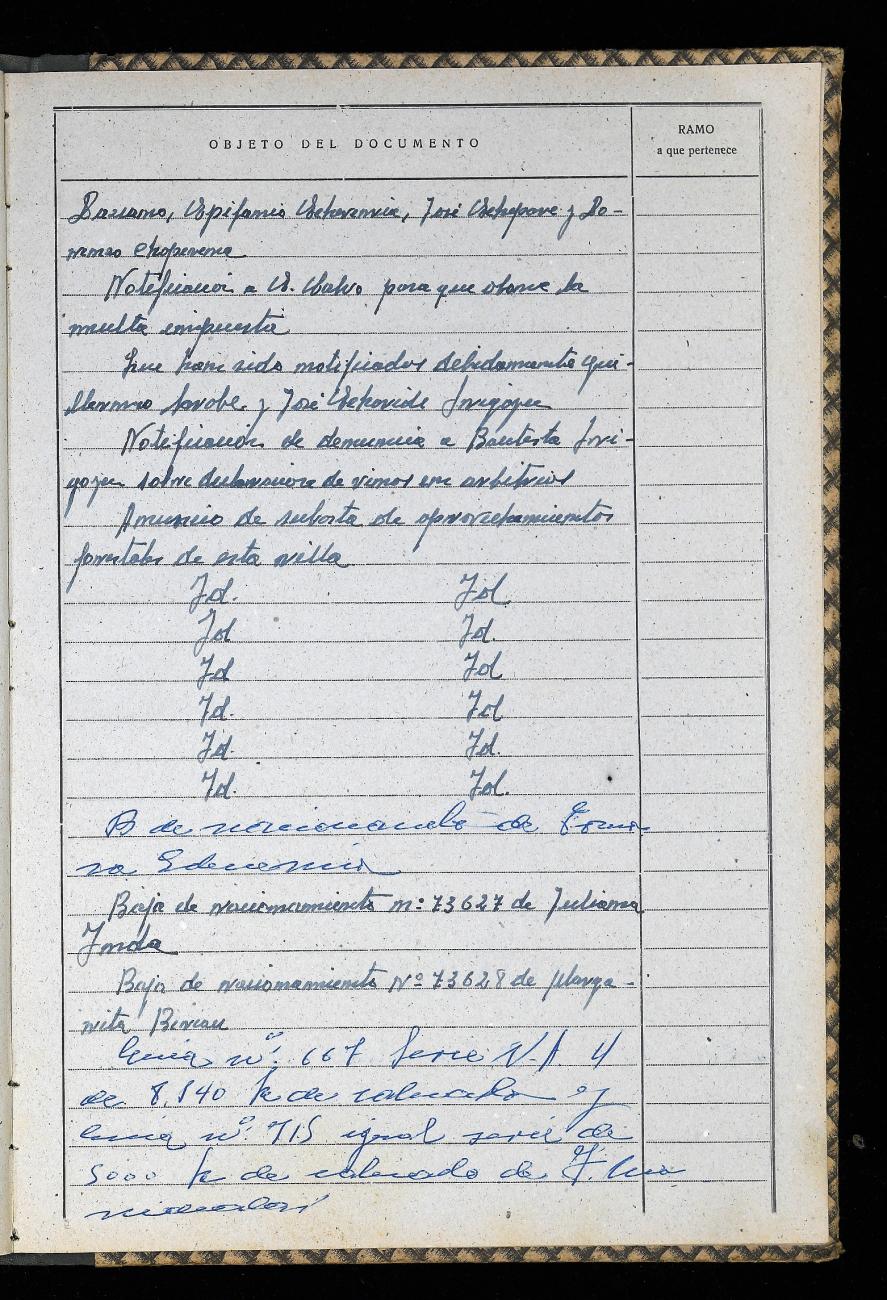 OBJETO DEL DOCUMENTO
RAMO
a que pertenece
Epifanio Echeverria, José Echepare y Do-
mingo
Notificación a E. Calvo para que abone la
multa impuesta
Que han sido notificados debidamente Gui-
llermo Arrobe y José Echavide Irigoyen
Notificación de denuncia a Bautista Iri-
goyen sobre de vinos en arbitrios
Anuncio de subasta de aprovechamientos
forestales de esta villa
Id. Id.
Id Id.
Id Id.
Id. Id
Id. Id.
Id. Id.
B de racionamiento de
Baja de racionamiento nº 73627 de Juliana
Inda
Baja de racionamiento Nº 73628 de Marga-
rita
Guia nº. 667 Serie N.A 4
de 8.540 k de y
Guia nº. 715 igual serie de
5000 k de de J.